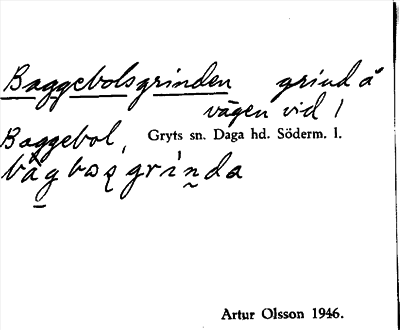 Baggebolsgrinden grind å
vägen vid /
Baggebol, Gryts sn. Daga hd. Söderm. l.
Artur Olsson 1946.